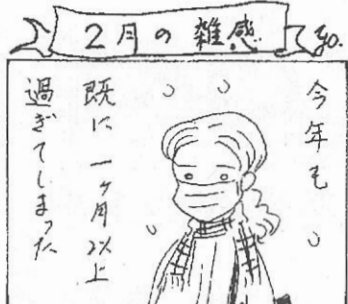 2月の雑感
今年も
既に一ヶ月以上
過ぎてしまった